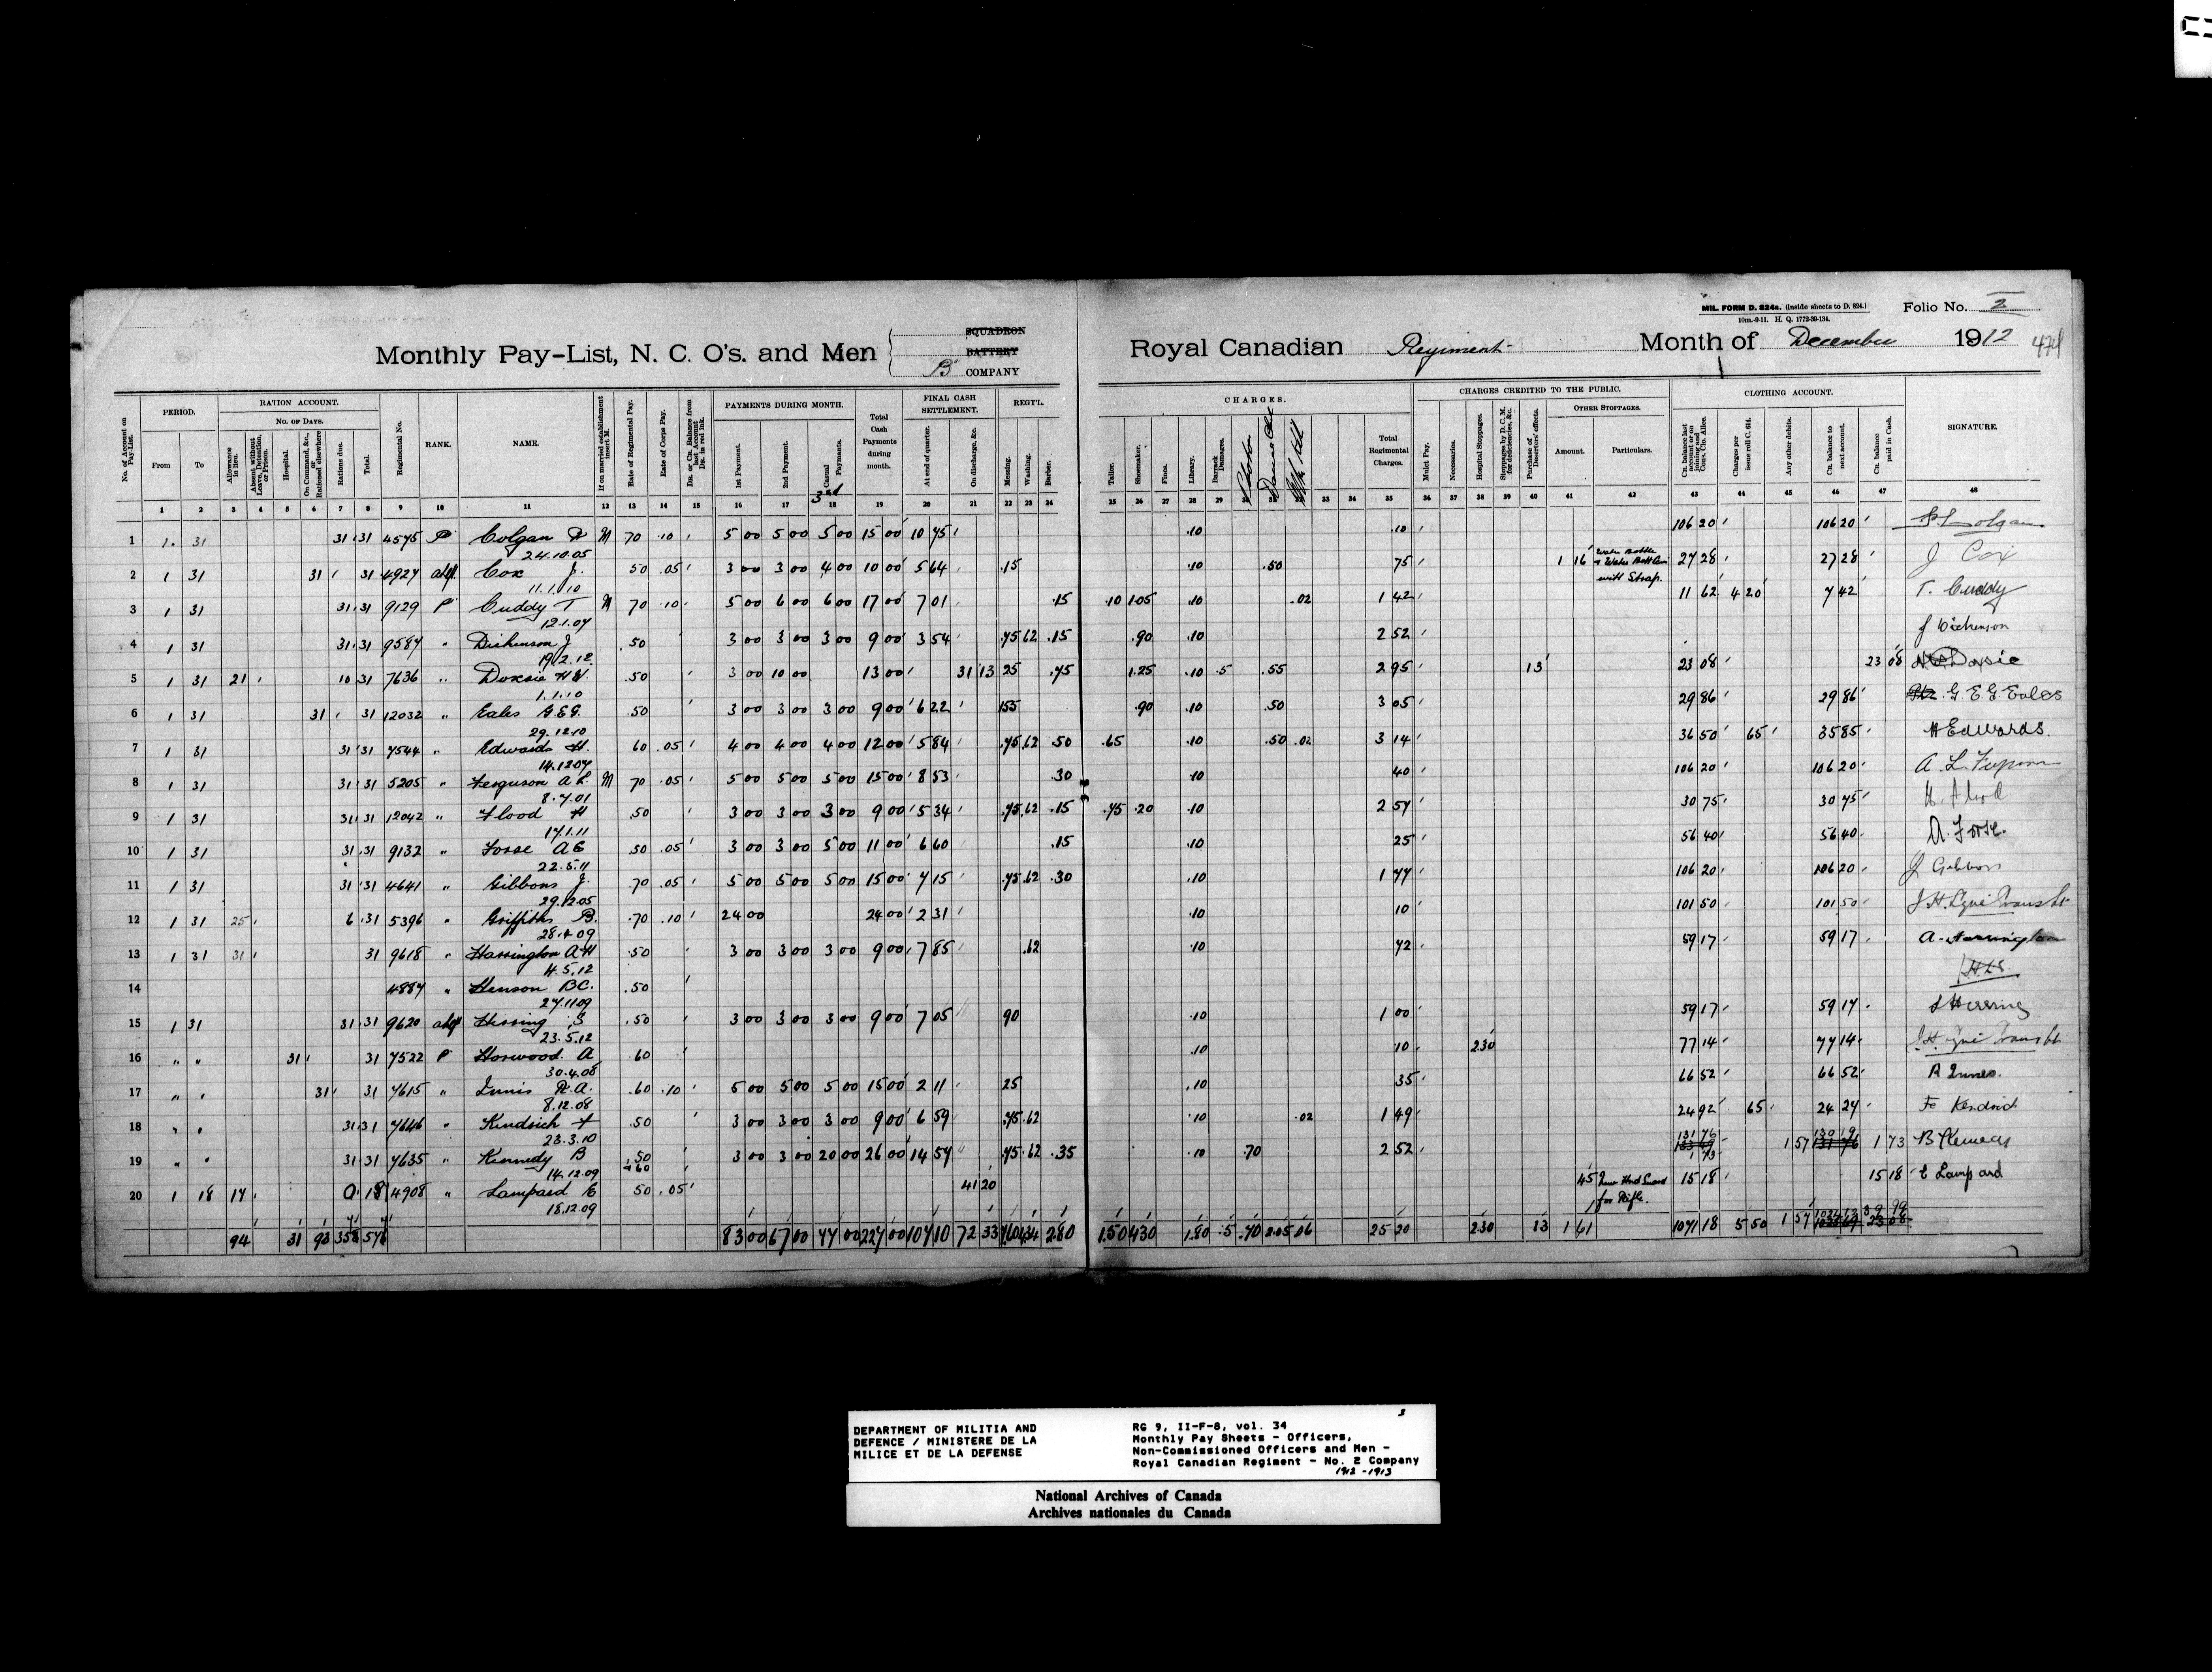 MIL. FORM D. 824a. (Inside sheets to D. 824.)
10m.-9-11. H. Q. 1772-39-134.
Folio No. 2
Monthly Pay-List, N. C. O's. and Men
SQUADRON
BATTERY
"B" COMPANY
Royal Canadian Regiment Month of December 1912
474
No. of Account on Pay-List. PERIOD. From To
RATION ACCOUNT. No. of Days. Allowance in lieu. Absent without Leave, Detention, or Prison. Hospital. On Command, &c., or Rationed elsewhere Rations due. Total.
Regimental No. RANK. NAME. If on married establishment insert M. Rate of Regimental Pay. Rate of Corps Pay. Drs. or Crs. Balance from last Account Drs. in red ink.
PAYMENTS DURING MONTH. 1st Payment. 2nd Payment. 3rd Casual Payments. Total Cash Payments during month.
FINAL CASH SETTLEMENT. At end of quarter. On discharge, &c.
REGT'L. CHARGES. Messing. Washing. Barber. Tailor. Shoemaker. Fines. Library. Barrack Damages. Total Regimental Charges.
CHARGES CREDITED TO THE PUBLIC. Mulct Pay. Necessaries. Hospital Stoppages. Stoppages by D. C. M. for deficiencies, &c. Purchase of Deserters' effects. Other Stoppages. Amount. Particulars.
CLOTHING ACCOUNT. Cr. balance last account or on joining and Cons. Clo. Allce. Charges per issue roll C. 614. Any other debits. Cr. balance to next account. Cr. balance paid in Cash. SIGNATURE.
1 2 3 4 5 6 7 8 9 10 11 12 13 14 15 16 17 18 19 20 21 22 23 24 25 26 27 28 29 33 34 35 36 37 38 39 40 41 42 43 44 45 46 47 48
1 1 31 31 31 4575 P Colgan M 70 .10 5 00 5 00 5 00 15 00 10 75 .10 10 106 20 106 20
24.10.05
2 1 31 31 31 4927 Cox J. 50 .05 3 00 3 00 4 00 10 00 5 64 .15 .10 .50 75 1 16 Water Bottle with Strap. 27 28 27 28 J Cox
11.1.10
3 1 31 31 31 9129 P Cuddy T M 70 .10 5 00 6 00 6 00 17 00 7 01 .15 .10 1.05 .10 .02 1 42 11 62 4 20 7 42 T. Cuddy
12.1.07
4 1 31 31 31 9587 " Dickenson J .50 3 00 3 00 3 00 9 00 3 54 .75 62 .15 .90 .10 2 52 J Dickenson
19.2.12
5 1 31 21 10 31 7636 " Doxsie H W .50 3 00 10 00 13 00 31 13 25 .75 1.25 .10 .5 .55 2 95 13 23 08 23 08 Doxsie
1.1.10
6 1 31 31 31 12032 " Eales G.E.G. .50 3 00 3 00 3 00 9 00 6 22 1 55 .90 .10 .50 3 05 29 86 29 86 G. E. G. Eales
29.12.10
7 1 31 31 31 7544 " Edwards H. 60 .05 4 00 4 00 4 00 12 00 5 84 .75 62 .50 .65 .10 .50 .02 3 14 36 50 65 35 85 H Edwards.
14.12.07
8 1 31 31 31 5205 " Ferguson A L. M 70 .05 5 00 5 00 5 00 15 00 8 53 .30 .10 40 106 20 106 20 A. L. Ferguson
8.7.01
9 1 31 31 31 12042 " Flood H .50 3 00 3 00 3 00 9 00 5 34 .75 .62 .15 .75 .20 .10 2 57 30 75 30 75 H. Flood
17.1.11
10 1 31 31 31 9132 " Fosse A E .50 .05 3 00 3 00 5 00 11 00 6 60 .15 .10 25 56 40 56 40
22.5.11
11 1 31 31 31 4641 " Gibbons J. .70 .05 5 00 5 00 5 00 15 00 7 15 .75 62 .30 .10 1 77 106 20 106 20 J Gibbons
29.12.05
12 1 31 25 6 31 5396 " Griffiths B. .70 .10 24 00 24 00 2 31 .10 10 101 50 101 50
28.4.09
13 1 31 31 31 9618 " Harrington A H .50 3 00 3 00 3 00 9 00 7 85 .62 .10 72 59 17 59 17 A. Harrington
4.5.12
14 4887 " Henson B C. .50
27.11.09
15 1 31 31 31 9620 Herring S .50 3 00 3 00 3 00 9 00 7 05 90 .10 1 00 59 17 59 17 S Herring
23.5.12
16 " " 31 31 7522 P Horwood. A .60 .10 10 2 30 77 14 77 14
30.4.08
17 " " 31 31 7615 " Innis R. A. .60 .10 5 00 5 00 5 00 15 00 2 11 25 .10 35 66 52 66 52
8.12.08
18 " " 31 31 7646 " Kendrick F .50 3 00 3 00 3 00 9 00 6 59 .75 .62 .10 .02 1 49 24 92 65 24 27
23.3.10
19 " " 31 31 7635 " Kennedy B .50 3 00 3 00 20 00 26 00 14 57 .75 .62 .35 .10 .70 2 52 131 76 1 57 130 19 1 73
14.12.09
20 1 18 17 18 4908 " Lampard E 50 .05 41 20 45 for Rifle. 15 18 15 18 E Lampard
18.12.09
94 31 93 83 00 67 00 77 00 227 00 107 10 72 33 2.80 1.50 4 30 1.80 .5 .70 2.05 .06 25 20 2 30 13 1 61 1071 18 5 50 1 57
DEPARTMENT OF MILITIA AND
DEFENCE / MINISTERE DE LA
MILICE ET DE LA DEFENSE
RG 9, II-F-8, vol. 34
Monthly Pay Sheets - Officers,
Non-Commissioned Officers and Men -
Royal Canadian Regiment - No. 2 Company
1912 - 1913
National Archives of Canada
Archives nationales du Canada